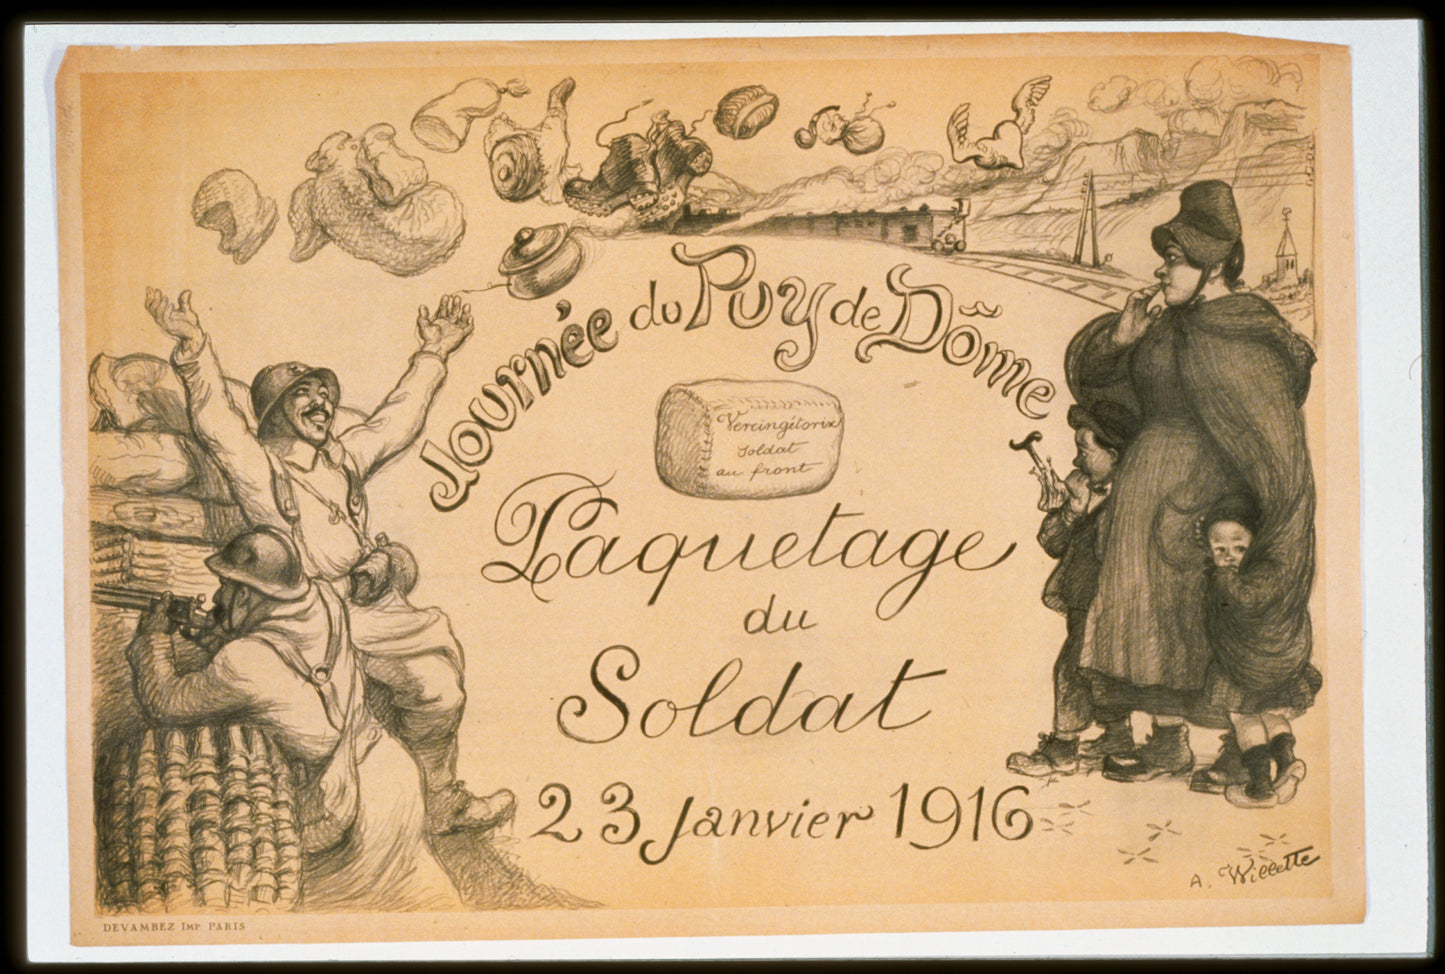 Journée du Puy de Dôme
Vercingétorix
soldat
au front
Paquetage
du
Soldat
23 Janvier 1916
A. Willette
DEVAMBEZ IMP. PARIS